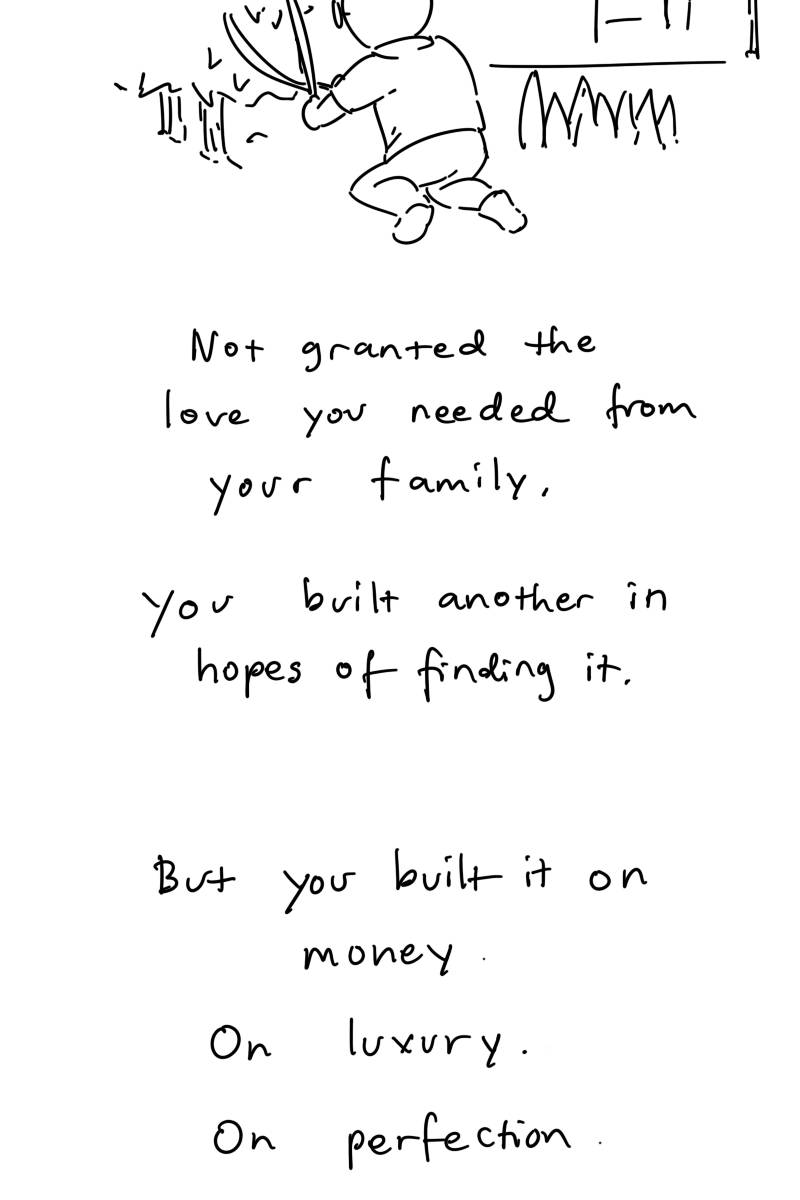 Not granted the
love you needed from
your family,
You built another in
hopes of finding it.
But you built it on
money.
On luxury.
On perfection.